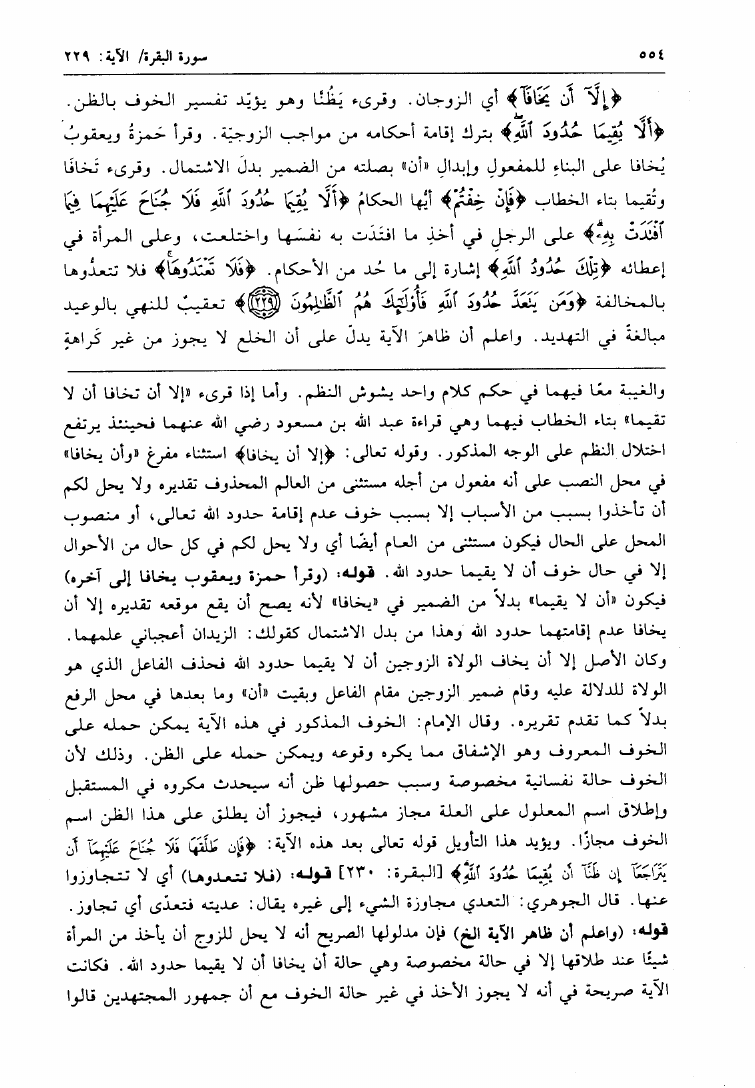 ٥٥٤ سورة البقرة/ الآية: ٢٢٩
﴿إِلَّآ أَن يَخَافَآ﴾ أي الزوجان. وقرىء يَظُنَّا وهو يؤيّد تفسير الخوف بالظن.
﴿أَلَّا يُقِيمَا حُدُودَ ٱللَّهِۖ﴾ بترك إقامة أحكامه من مواجب الزوجيّة. وقرأ حَمزةُ ويعقوبُ
يُخافا على البناءِ للمفعولِ وإبدالِ «أن» بصلته من الضمير بدلَ الاشتمال. وقرىء تَخافَا
وتُقيما بتاء الخطاب ﴿فَإِنْ خِفْتُمْ﴾ أيُّها الحكامُ ﴿أَلَّا يُقِيمَا حُدُودَ ٱللَّهِ فَلَا جُنَاحَ عَلَيْهِمَا فِيمَا
ٱفْتَدَتْ بِهِۦۗ﴾ على الرجلِ في أخذِ ما افتَدَت به نفسَها واختلعت، وعلى المرأة في
إعطائه ﴿تِلْكَ حُدُودُ ٱللَّهِ﴾ إشارة إلى ما حُد من الأحكام. ﴿فَلَا تَعْتَدُوهَاۚ﴾ فلا تتعدُّوها
بالمخالفة ﴿وَمَن يَتَعَدَّ حُدُودَ ٱللَّهِ فَأُوْلَٰٓئِكَ هُمُ ٱلظَّٰلِمُونَ ﴿٢٢٩﴾﴾ تعقيبٌ للنهي بالوعيد
مبالغةً في التهديد. واعلم أن ظاهرَ الآية يدلّ على أن الخلع لا يجوز من غير كَراهةٍ
والغيبة معًا فيهما في حكم كلام واحد يشوش النظم. وأما إذا قرىء «إلا أن تخافا أن لا
تقيما» بتاء الخطاب فيهما وهي قراءة عبد الله بن مسعود رضي الله عنهما فحينئذ يرتفع
اختلال النظم على الوجه المذكور. وقوله تعالى: ﴿إلا أن يخافا﴾ استثناء مفرغ «وأن يخافا»
في محل النصب على أنه مفعول من أجله مستثنى من العالم المحذوف تقديره ولا يحل لكم
أن تأخذوا بسبب من الأسباب إلا بسبب خوف عدم إقامة حدود الله تعالى، أو منصوب
المحل على الحال فيكون مستثنى من العام أيضًا أي ولا يحل لكم في كل حال من الأحوال
إلا في حال خوف أن لا يقيما حدود الله. قوله: (وقرأ حمزة ويعقوب يخافا إلى آخره)
فيكون «أن لا يقيما» بدلاً من الضمير في «يخافا» لأنه يصح أن يقع موقعه تقديره إلا أن
يخافا عدم إقامتهما حدود الله وهذا من بدل الاشتمال كقولك: الزيدان أعجباني علمهما.
وكان الأصل إلا أن يخاف الولاة الزوجين أن لا يقيما حدود الله فحذف الفاعل الذي هو
الولاة للدلالة عليه وقام ضمير الزوجين مقام الفاعل وبقيت «أن» وما بعدها في محل الرفع
بدلاً كما تقدم تقريره. وقال الإمام: الخوف المذكور في هذه الآية يمكن حمله على
الخوف المعروف وهو الإشفاق مما يكره وقوعه ويمكن حمله على الظن. وذلك لأن
الخوف حالة نفسانية مخصوصة وسبب حصولها ظن أنه سيحدث مكروه في المستقبل
وإطلاق اسم المعلول على العلة مجاز مشهور، فيجوز أن يطلق على هذا الظن اسم
الخوف مجازًا. ويؤيد هذا التأويل قوله تعالى بعد هذه الآية: ﴿فَإِن طَلَّقَهَا فَلَا جُنَاحَ عَلَيْهِمَآ أَن
يَتَرَاجَعَآ إِن ظَنَّآ أَن يُقِيمَا حُدُودَ ٱللَّهِۗ﴾ [البقرة: ٢٣٠] قوله: (فلا تتعدوها) أي لا تتجاوزوا
عنها. قال الجوهري: التعدي مجاوزة الشيء إلى غيره يقال: عديته فتعدّى أي تجاوز.
قوله: (واعلم أن ظاهر الآية الخ) فإن مدلولها الصريح أنه لا يحل للزوج أن يأخذ من المرأة
شيئًا عند طلاقها إلا في حالة مخصوصة وهي حالة أن يخافا أن لا يقيما حدود الله. فكانت
الآية صريحة في أنه لا يجوز الأخذ في غير حالة الخوف مع أن جمهور المجتهدين قالوا